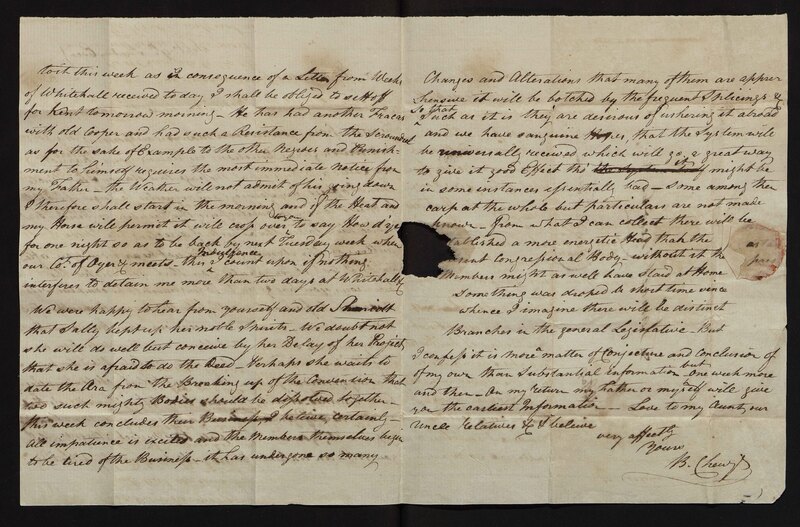 to it this week as in consequence of a Letter from Weeks
of Whitehall received to day I shall be obliged to sett off
for Kent tomorrow morning – He has had another Fracas
with old Cooper and had such a Resistance from the Scoundrel
as for the sake of Example to the other Negroes and Punish-
ment to himself requires the most immediate notice from
my Father – the Weather will not admit of his going down
I therefore shall start in the morning and if the Heat and
my Horse will permit it will cross over to you to say How d'ye
for one night so as to be back by next Tuesday week when
our Ct. of Oyer &c meets – this Indulgence I count upon if nothing
interferes to detain me more than two days at Whitehall
We were happy to hear from yourself and
that Sally kept up her noble Spirits – We doubt not
she will do well but conceive by her Delay of her Project
that she is afraid to do the Deed – Perhaps she waits to
date the Æra from the Breaking up of the Convention that
two such mighty Bodies should be disposed together
this week concludes their Business I believe, certainly –
All impatience is excited and the Members themselves begin
to be tired of the Business – it has undergone so many
Changes and Alterations that many of them are appre-
hensive it will be botched by the frequent Splicings &c
Such as it is they are desirous of ushering it abroad
and we have sanguine Hopes, that the System will
be universally received which will go a great way
to give it good Effect tho it might be
in some instances essentially bad – Some among them
carp at the whole but particulars are not made
known – From what I can collect there will be
established a more energetic Head than the
Congressional Body – without it the
Members might as well have staid at Home
Something was droped a short time since
whence I imagine there will be distinct
Branches in the general Legislative – But
I confess it is more matter of Conjecture and conclusion of
of my own than Substantial Information – but One week more
and then – On my return my Father or myself will give
you the earliest Information – Love to my Aunt, our
Uncle Relatives &c & believe
very affectly
Yours
B. Chew Jr